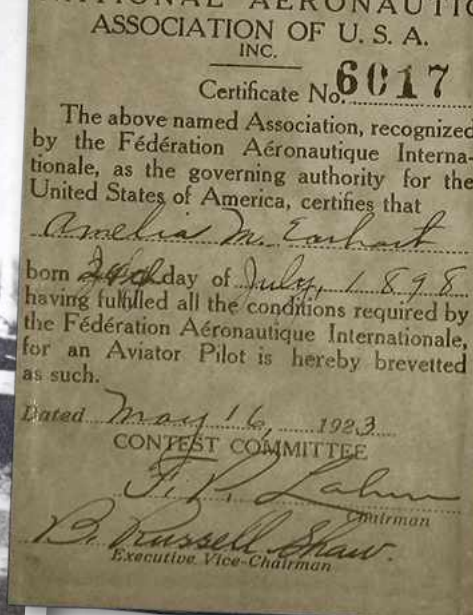 NATIONAL AERONAUTIC
ASSOCIATION OF U. S. A.
INC.
Certificate No. 6017
The above named Association, recognized
by the Fédération Aéronautique Interna-
tionale, as the governing authority for the
United States of America, certifies that
Amelia M. Earhart
born day of July, 1898
having fulfilled all the conditions required by
the Fédération Aéronautique Internationale,
for an Aviator Pilot is hereby brevetted
as such.
Dated May 16, 1923
CONTEST COMMITTEE
F. P. Lahm
Chairman
B. Russell Shaw.
Executive Vice-Chairman